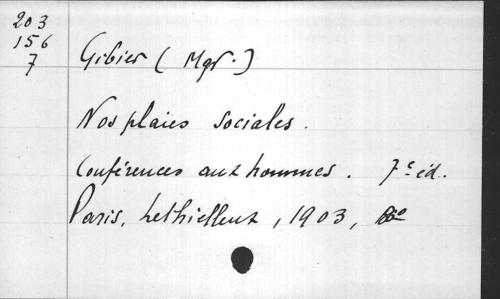 203
156
7
Gibier (Mgr.)
Nos plaies sociales.
Conférences aux hommes. 7e éd.
Paris, Lethielleux, 1903,